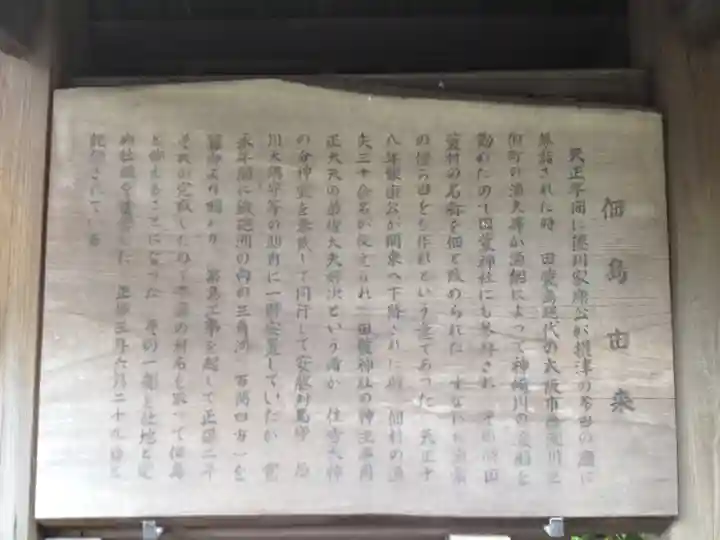 佃島由来
天正年間に徳川家康公が摂津の多田の廟に
参詣された時 田蓑島現代の大阪市西淀川区
佃町の漁夫等が漁船によって神崎川の渡船を
勤めたので田蓑神社にも参拝され その時田
蓑村の名称を佃と改められた すなわち漁業
の傍ら田をも作れという意であった 天正十
八年家康公が関東へ下降された時 佃村の漁
夫三十余名が従えられ 田蓑神社の神主平岡
正大夫の弟権大夫好次という者が 住吉大神
の分神霊を奉戴して同行して安藤対馬守 石
川大隅守等の邸内に一時安置していたが 寛
永年間に鉄砲洲の向の三角洲 百間四方 を
幕府より賜わり 築島工事を起して正保二年
それが完成したので 本国の村名を取って佃島
と称えることになった その一劃を社地と定
め社殿を造営した 正保三年六月二十九日と
記録されている